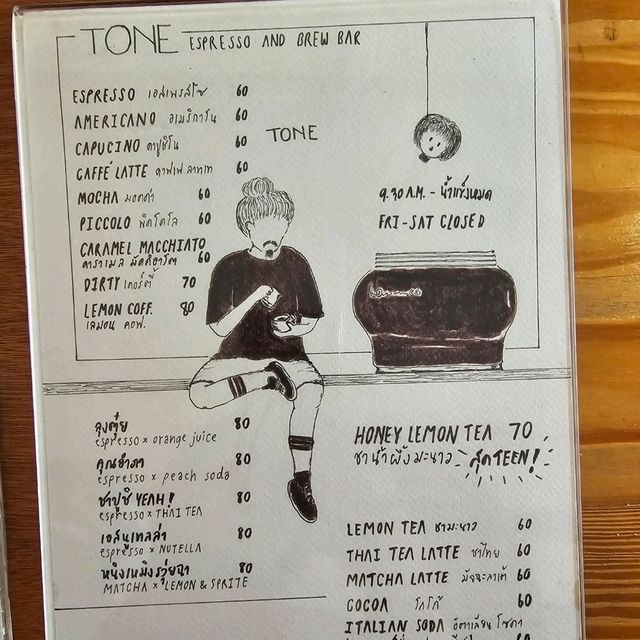 TONE ESPRESSO AND BREW BAR
ESPRESSO เอสเพรสโซ 60
AMERICANO อเมริกาโน 60
CAPUCINO คาปูชิโน 60
CAFFÉ LATTE คาฟเฟ่ ลาเท 60
MOCHA มอคค่า 60
PICCOLO พิคโคโล 60
CARAMEL MACCHIATO
คาราเมล มัคคิอาโต 60
DIRTY เดอร์ตี้ 70
LEMON COFF. 80
เลมอน คอฟ.
TONE
9.30 A.M. - น้ำแข็งหมด
FRI-SAT CLOSED
ลุงตุ๋ย 80
espresso x orange juice
คุณอำภา 80
espresso x peach soda
ชาปูชิ YEAH! 80
espresso x THAI TEA
เอสนูเทลล่า 80
espresso x NUTELLA
หนิงเหมิงร่วยฉา 80
MATCHA x LEMON & SPRITE
HONEY LEMON TEA 70
ชาน้ำผึ้งมะนาว สุดTEEN!
LEMON TEA ชามะนาว 60
THAI TEA LATTE ชาไทย 60
MATCHA LATTE มัจฉะลาเต้ 60
COCOA โกโก้ 60
ITALIAN SODA อิตาเลียน โซดา 60